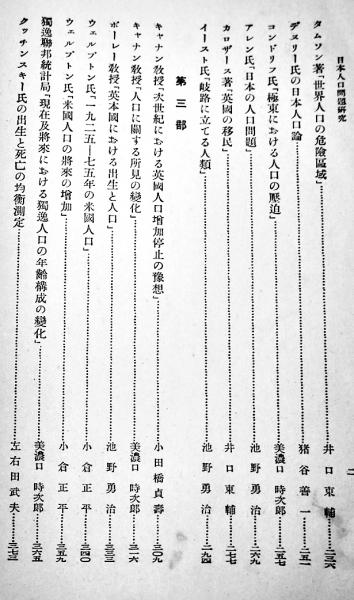 日本人口問題研究
二
タムソン著「世界人口の危險區域」……井口東輔……二三六
デヌリー氏の日本人口論……猪谷善一……二五一
コンドリフ氏「極東における人口の壓迫」……美濃口時次郎……二五七
アレン氏「日本の人口問題」……池野勇治……二六九
カロザース著「英國の移民」……井口東輔……二七七
イースト氏「岐路に立てる人類」……池野勇治……二九四
第三部
キャナン敎授「次世紀における英國人口增加停止の豫想」……小田橋貞壽……三〇九
キャナン敎授「人口に關する所見の變化」……美濃口時次郎……三一六
ボーレー敎授「英本國における出生と人口」……池野勇治……三三三
ウェルプトン氏「一九二五—七五年の米國人口」……小倉正平……三四〇
ウェルプトン氏「米國人口の將來の增加」……小倉正平……三五九
獨逸聯邦統計局「現在及將來における獨逸人口の年齡構成の變化」……美濃口時次郎……三六五
クッチンスキー氏の出生と死亡の均衡測定……左右田武夫……三七三